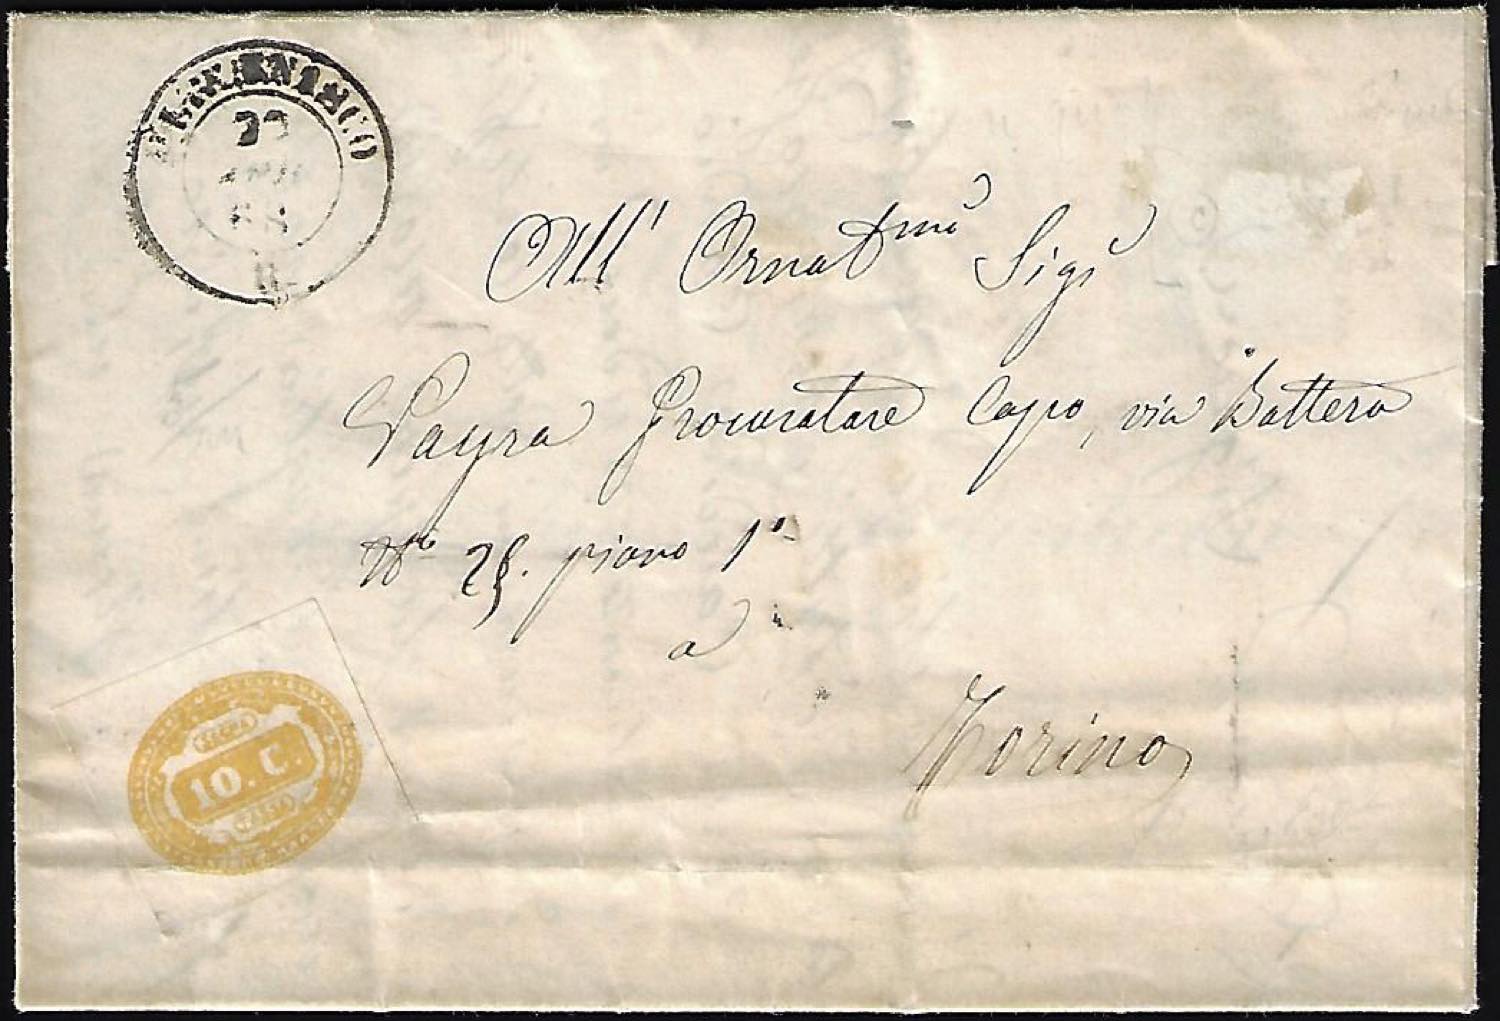 22
All' Ornat.mi Sigr
Vayra Procuratore Capo, via Bottero
No 25. piano 1o
a
Torino
SEGNA
10. C.
TASSA